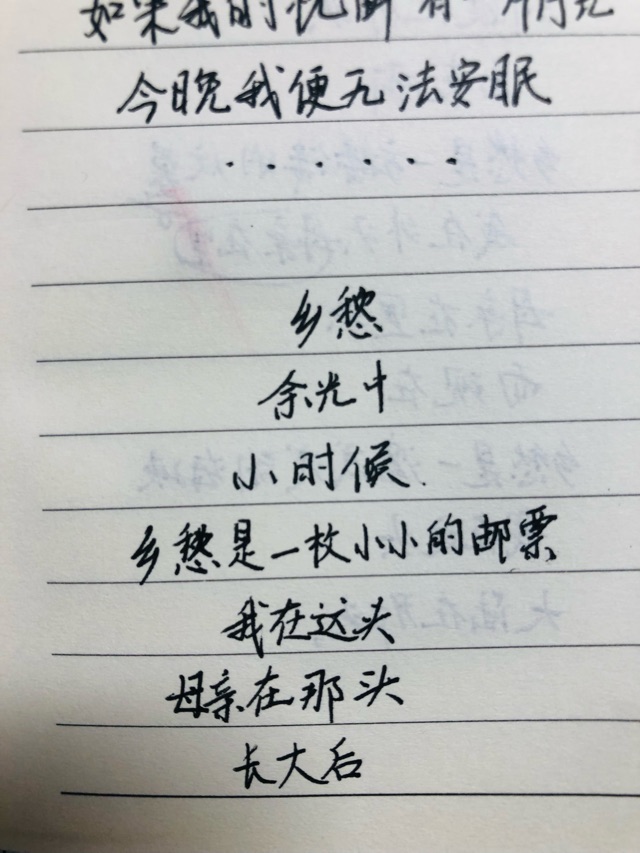 如果我的枕
今晚我便无法安眠
.......
乡愁
余光中
小时候
乡愁是一枚小小的邮票
我在这头
母亲在那头
长大后